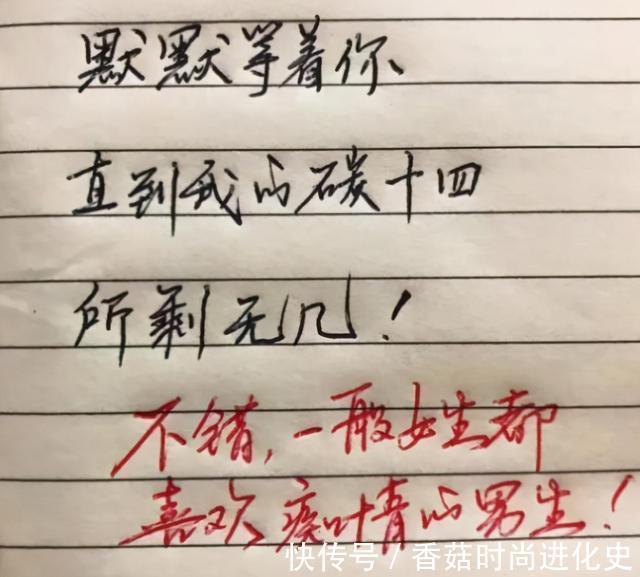 默默等着你、
直到我的碳十四
所剩无几！
不错,一般女生都
喜欢痴情的男生！
快传号/香菇时尚进化史